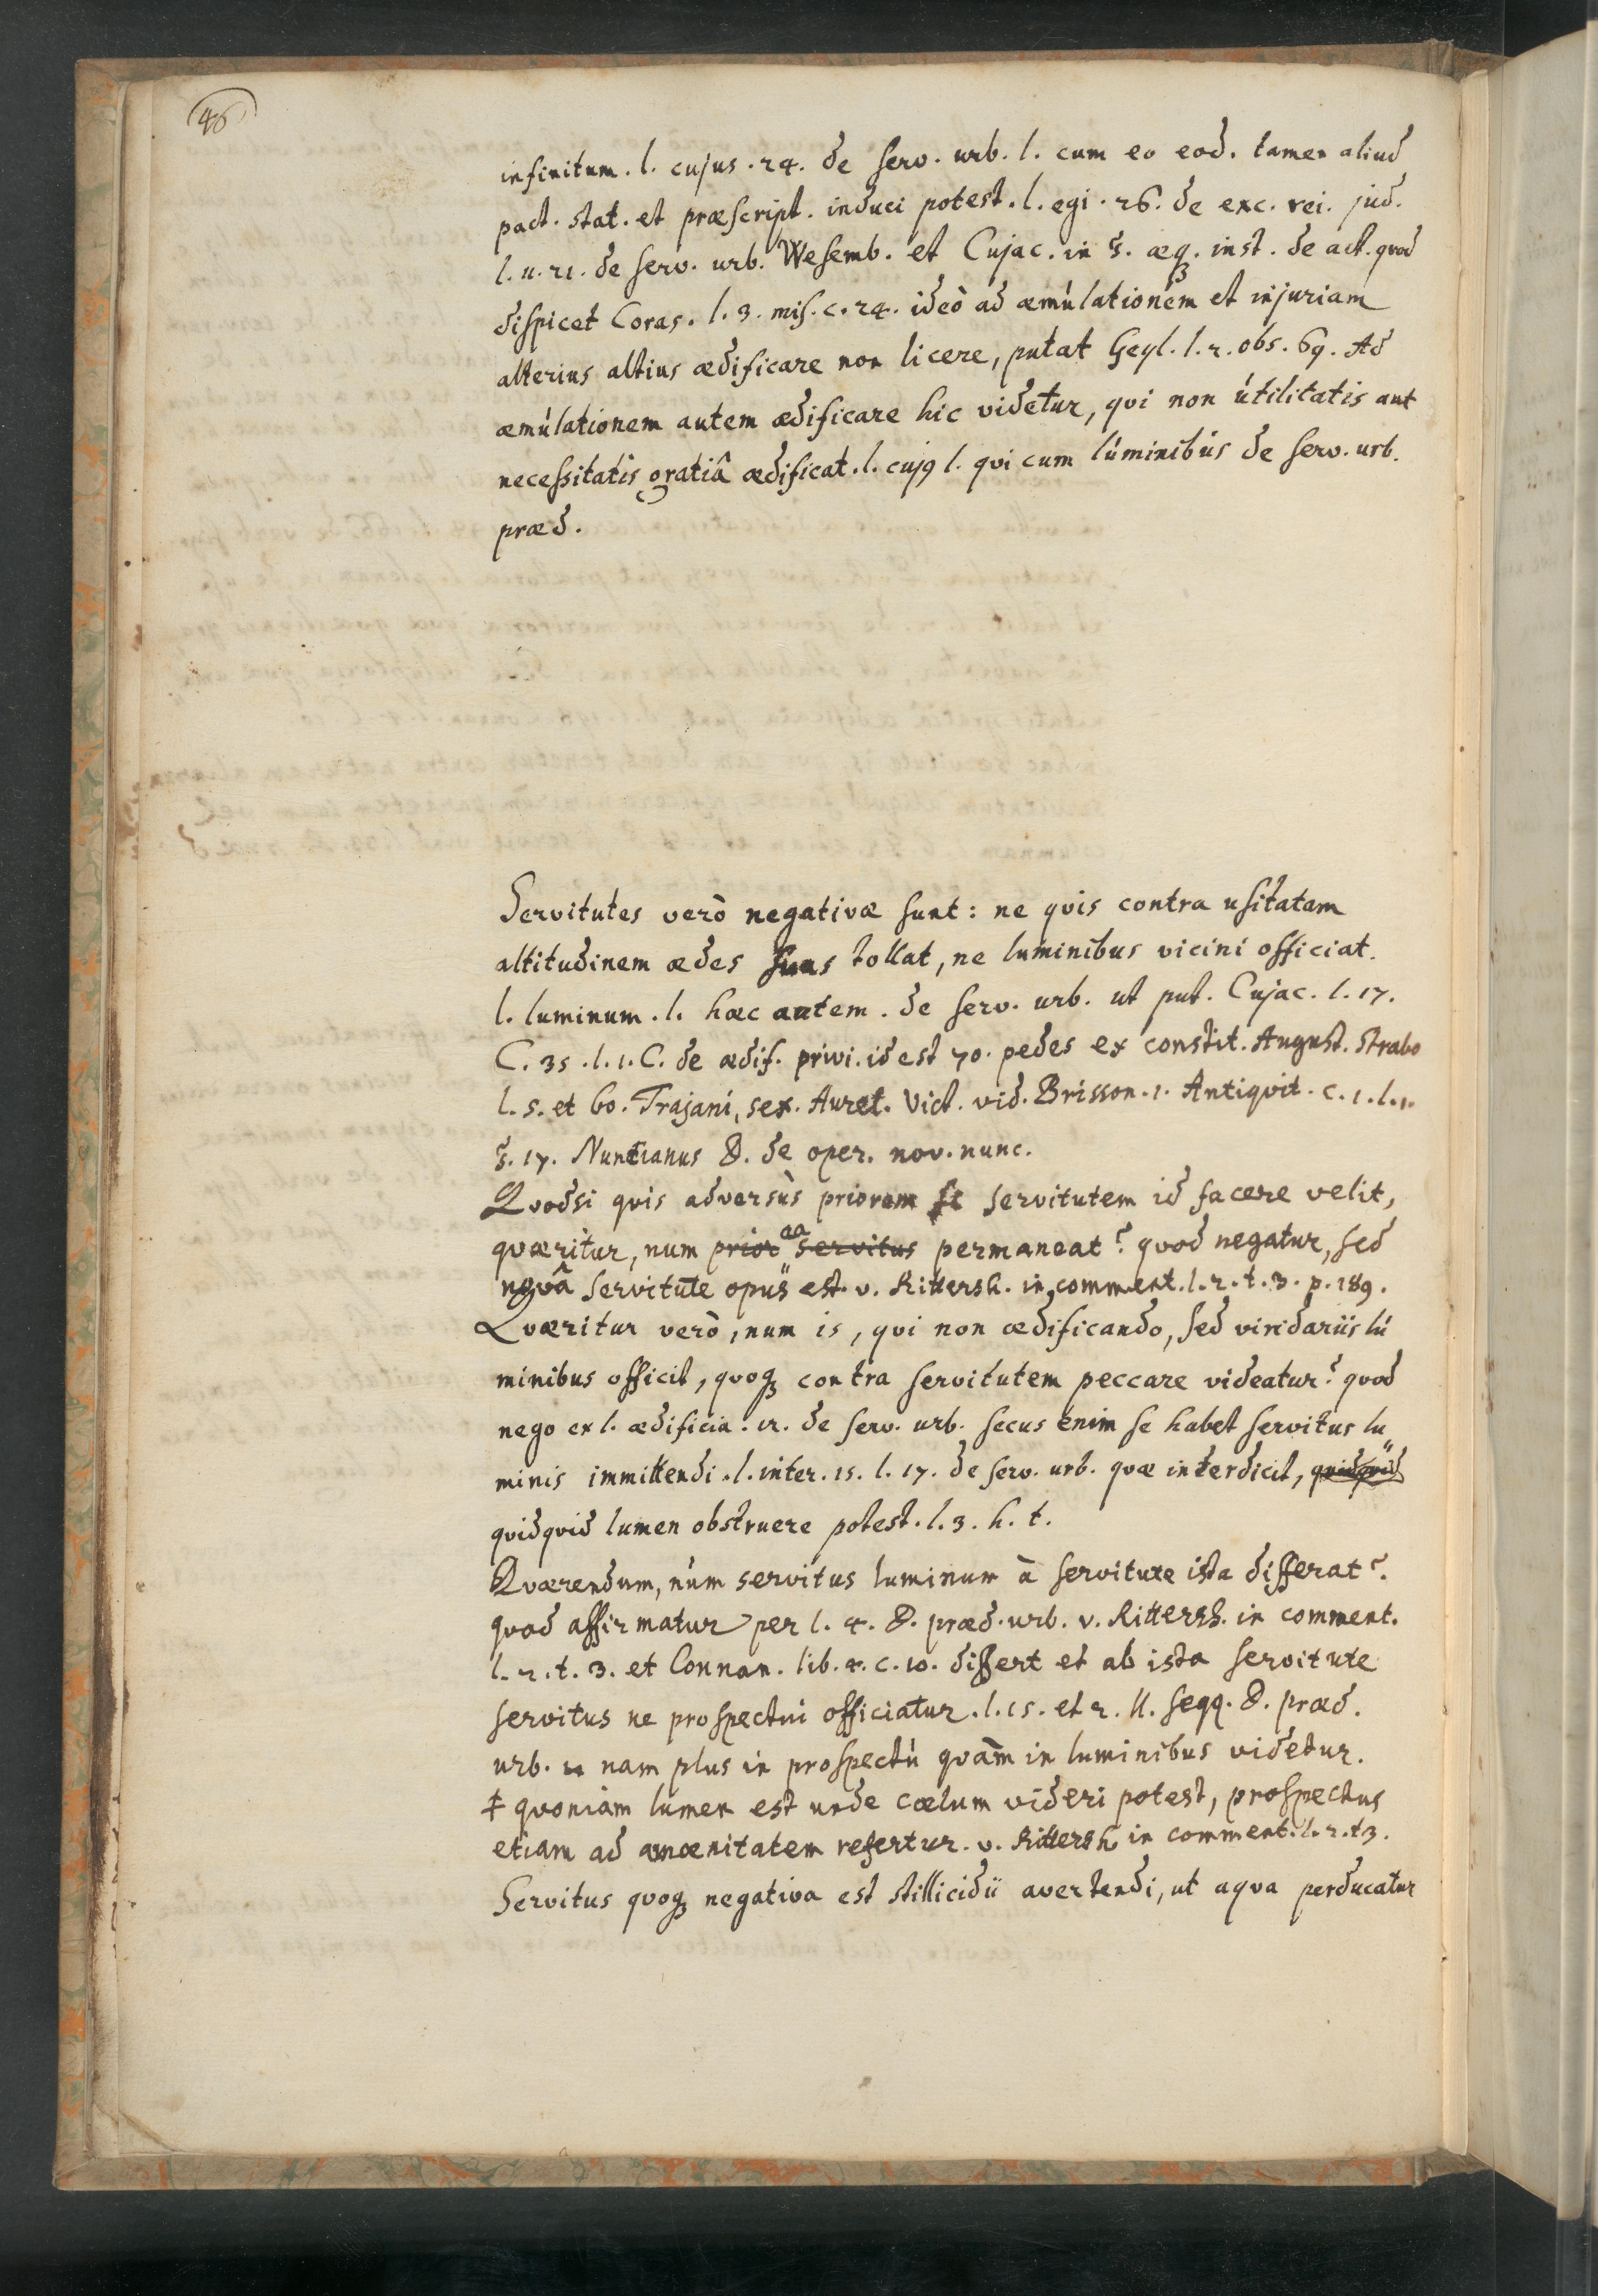 46
infinitum. l. cujus. 24. de serv. urb. l. cum eo eod. tamen aliud
pact. stat. et præscript. induci potest. l. egi. 26. de exc. rei. jud.
l. u. 21. de serv. urb. Wesemb. et Cujac. in §. æq. inst. de act. qvod
dispicet Coras. l. 3. mis. c. 24. ideò ad æmulationem et injuriam
alterius altius ædificare non licere, putat Geyl. l. 2. obs. 69. Ad
æmulationem autem ædificare hic videtur, qvi non utilitatis aut
necessitatis gratiâ ædificat. l. cuj9 l. qvi cum luminibus de serv. urb.
præd.
Servitutes verò negativæ sunt: ne qvis contra usitatam
altitudinem ædes suas tollat, ne luminibus vicini officiat.
l. luminum. l. hæc autem. de serv. urb. ut put. Cujac. l. 17.
C. 35. l. 1. C. de ædif. privi. id est 70. pedes ex constit. August. Strabo
l. 5. et 60. Trajani, sex. Aurel. Vict. vid. Brisson. 1. Antiqvit. c. 1. l. 1.
§. 17. Nuncianus D. de oper. nov. nunc.
Qvodsi qvis adversùs priorem servitutem id facere velit,
qværitur, num prior ea servitus permaneat? qvod negatur, sed
novâ servitute opus est. v. Rittersh. in comment. l. 2. t. 3. p. 189.
Qværitur verò, num is, qvi non ædificando, sed viridariis lu
minibus officit, qvoq3 contra servitutem peccare videatur? qvod
nego ex l. ædificia. 12. de serv. urb. secus enim se habet servitus lu„
minis immittendi. l. inter. 15. l. 17. de serv. urb. qvæ interdicit, qvidqvid
qvidqvid lumen obstruere potest. l. 3. h. t.
Qværendum, num servitus luminum à servitute ista differat?
qvod affirmatur per l. 4. D. præd. urb. v. Rittersh. in comment.
l. 2. t. 3. et Connan. lib. 4. c. 10. differt et ab ista servitute
servitus ne prospectui officiatur. l. 15. et 2. ll. seqq. D. præd.
urb. nam plus in prospectu qvàm in luminibus videtur.
‡ qvoniam lumen est unde cœlum videri potest, prospectus
etiam ad amœnitatem refertur. v. Rittersh in comment. l. 2. t 3.
Servitus qvoq3 negativa est stillicidii avertendi, ut aqva perducatur